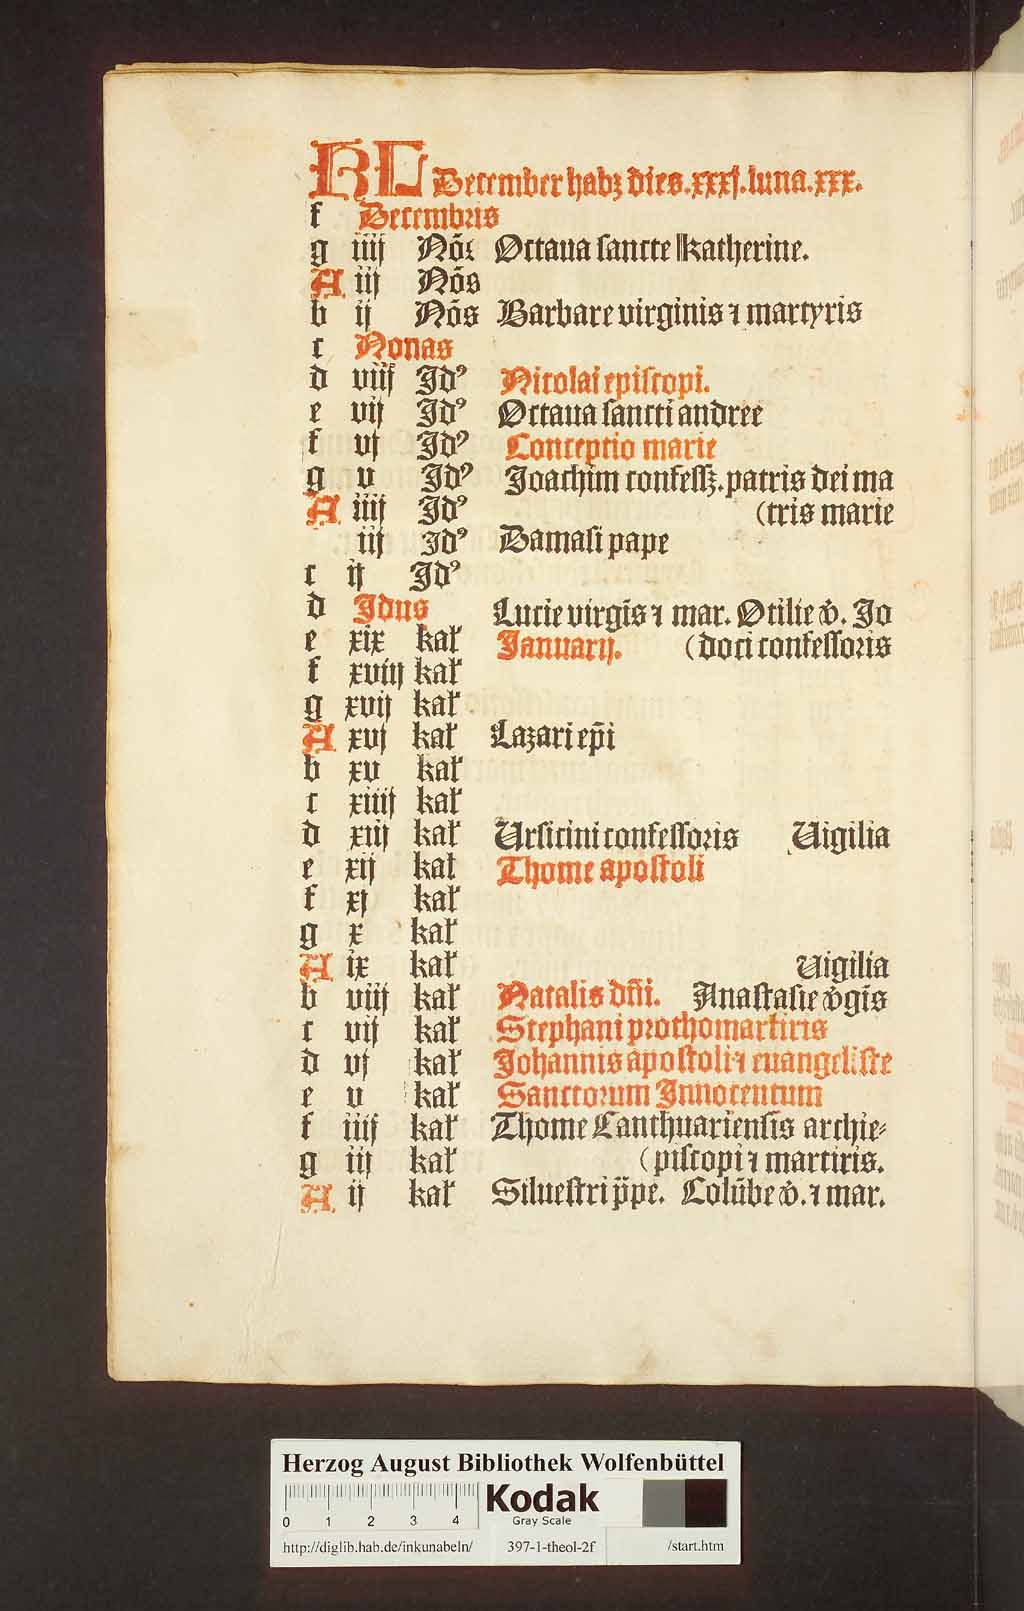 KL December habꝫ dies.xxxj.luna.xxx.
f Decembris
g iiij Nōs Octaua sancte Katherine.
A iij Nōs
b ij Nōs Barbare virginis ⁊ martyris
c Nonas
d viij Idꝰ Nicolai episcopi.
e vij Idꝰ Octaua sancti andree
f vj Idꝰ Conceptio marie
g v Idꝰ Joachim confessꝫ. patris dei ma
A iiij Idꝰ (tris marie
iij Idꝰ Damasi pape
c ij Idꝰ
d Idus Lucie virgīs ⁊ mar. Otilie v̓. Jo
e xix kal Januarij. (doci confessoris
f xviij kal
g xvij kal
A xvj kal Lazari ep̄i
b xv kal
c xiiij kal
d xiij kal Ursicini confessoris Uigilia
e xij kal Thome apostoli
f xj kal
g x kal
A ix kal Uigilia
b viij kal Natalis dn̄i. Anastasie v̓gīs
c vij kal Stephani prothomartiris
d vj kal Johannis apostoli ⁊ euangeliste
e v kal Sanctorum Innocentum
f iiij kal Thome Canthuariensis archie⸗
g iij kal (piscopi ⁊ martiris.
A ij kal Siluestri p̄pe. Colūbe v̓. ⁊ mar.
Herzog August Bibliothek Wolfenbüttel
0 1 2 3 4 Kodak
Gray Scale
http://diglib.hab.de/inkunabeln/ 397-1-theol-2f /start.htm